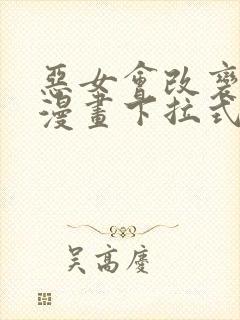 惡女會改變
漫畫下拉式
吳高慶